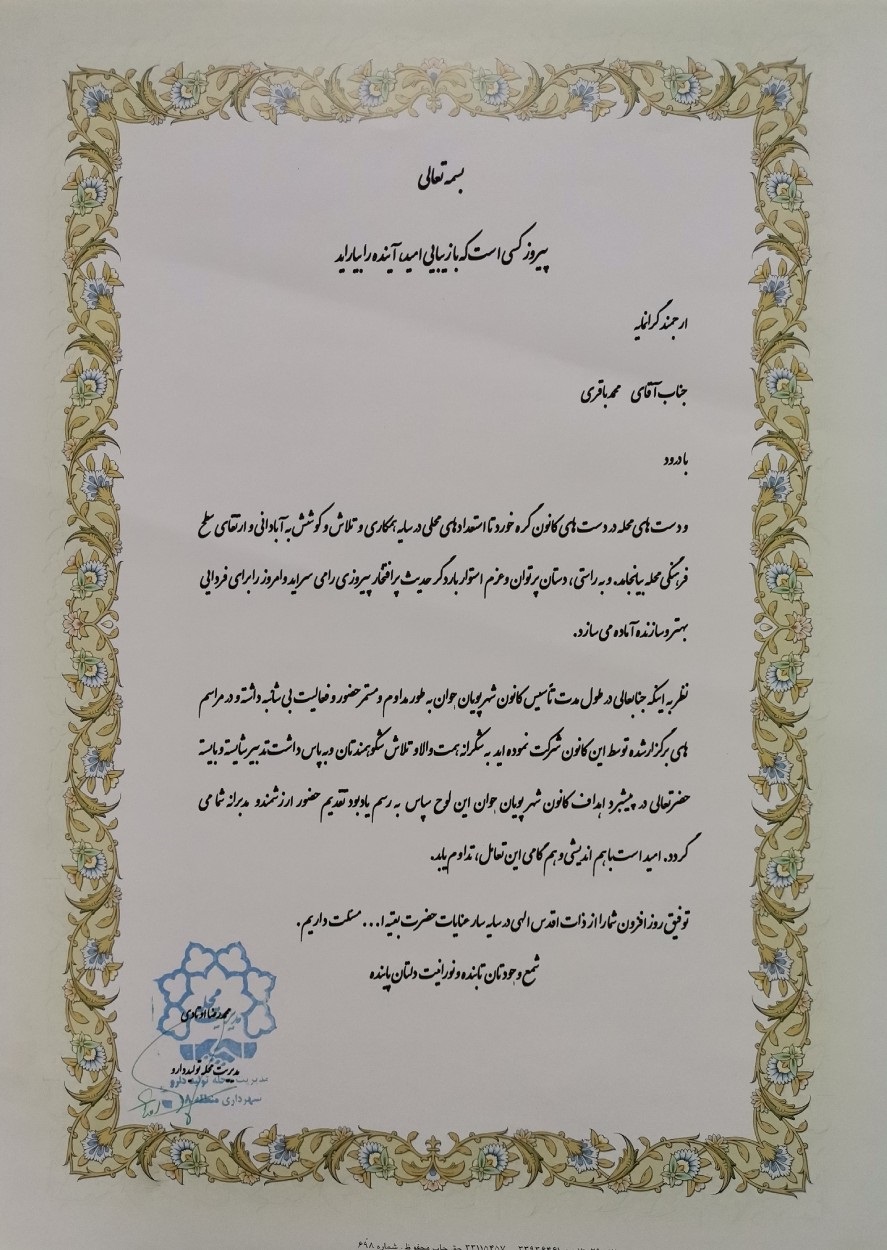 بسمه تعالی
پیروز کسی است که با زیبایی امید، آینده را بیاراید
ارجمند گرانمایه
جناب آقای محمد باقری
با درود
و دست های محله در دست های کانون گره خورد تا استعدادهای محلی در سایه همکاری و تلاش و کوشش به آبادانی و ارتقای سطح
فرهنگی محله بیانجامد. و به راستی، دستان پرتوان و عزم استوار بار دگر حدیث پر افتخار پیروزی را می سراید و امروز را برای فردایی
بهتر و سازنده آماده می سازد.
نظر به اینکه جنابعالی در طول مدت تأسیس کانون شهر پویان جوان به طور مداوم و مستمر حضور و فعالیت بی شائبه داشته و در مراسم
های برگزار شده توسط این کانون شرکت نموده اید به شکرانه همت والا و تلاش شکوهمندتان و به پاس داشت تدبیر شایسته و بایسته
حضرتعالی در پیشبرد اهداف کانون شهر پویان جوان این لوح سپاس به رسم یادبود تقدیم حضور ارزشمند و مدبرانه شما می
گردد. امید است با هم اندیشی و هم گامی این تعامل، تداوم یابد.
توفیق روز افزون شما را از ذات اقدس الهی در سایه سار عنایات حضرت بقیة ا... مسئلت داریم.
شمع وجودتان تابنده و نورانیت دلتان پاینده
محمدرضا اوتادی
مدیریت محله تولید دارو
مدیریت محله تولید دارو
شهرداری منطقه ۱۸